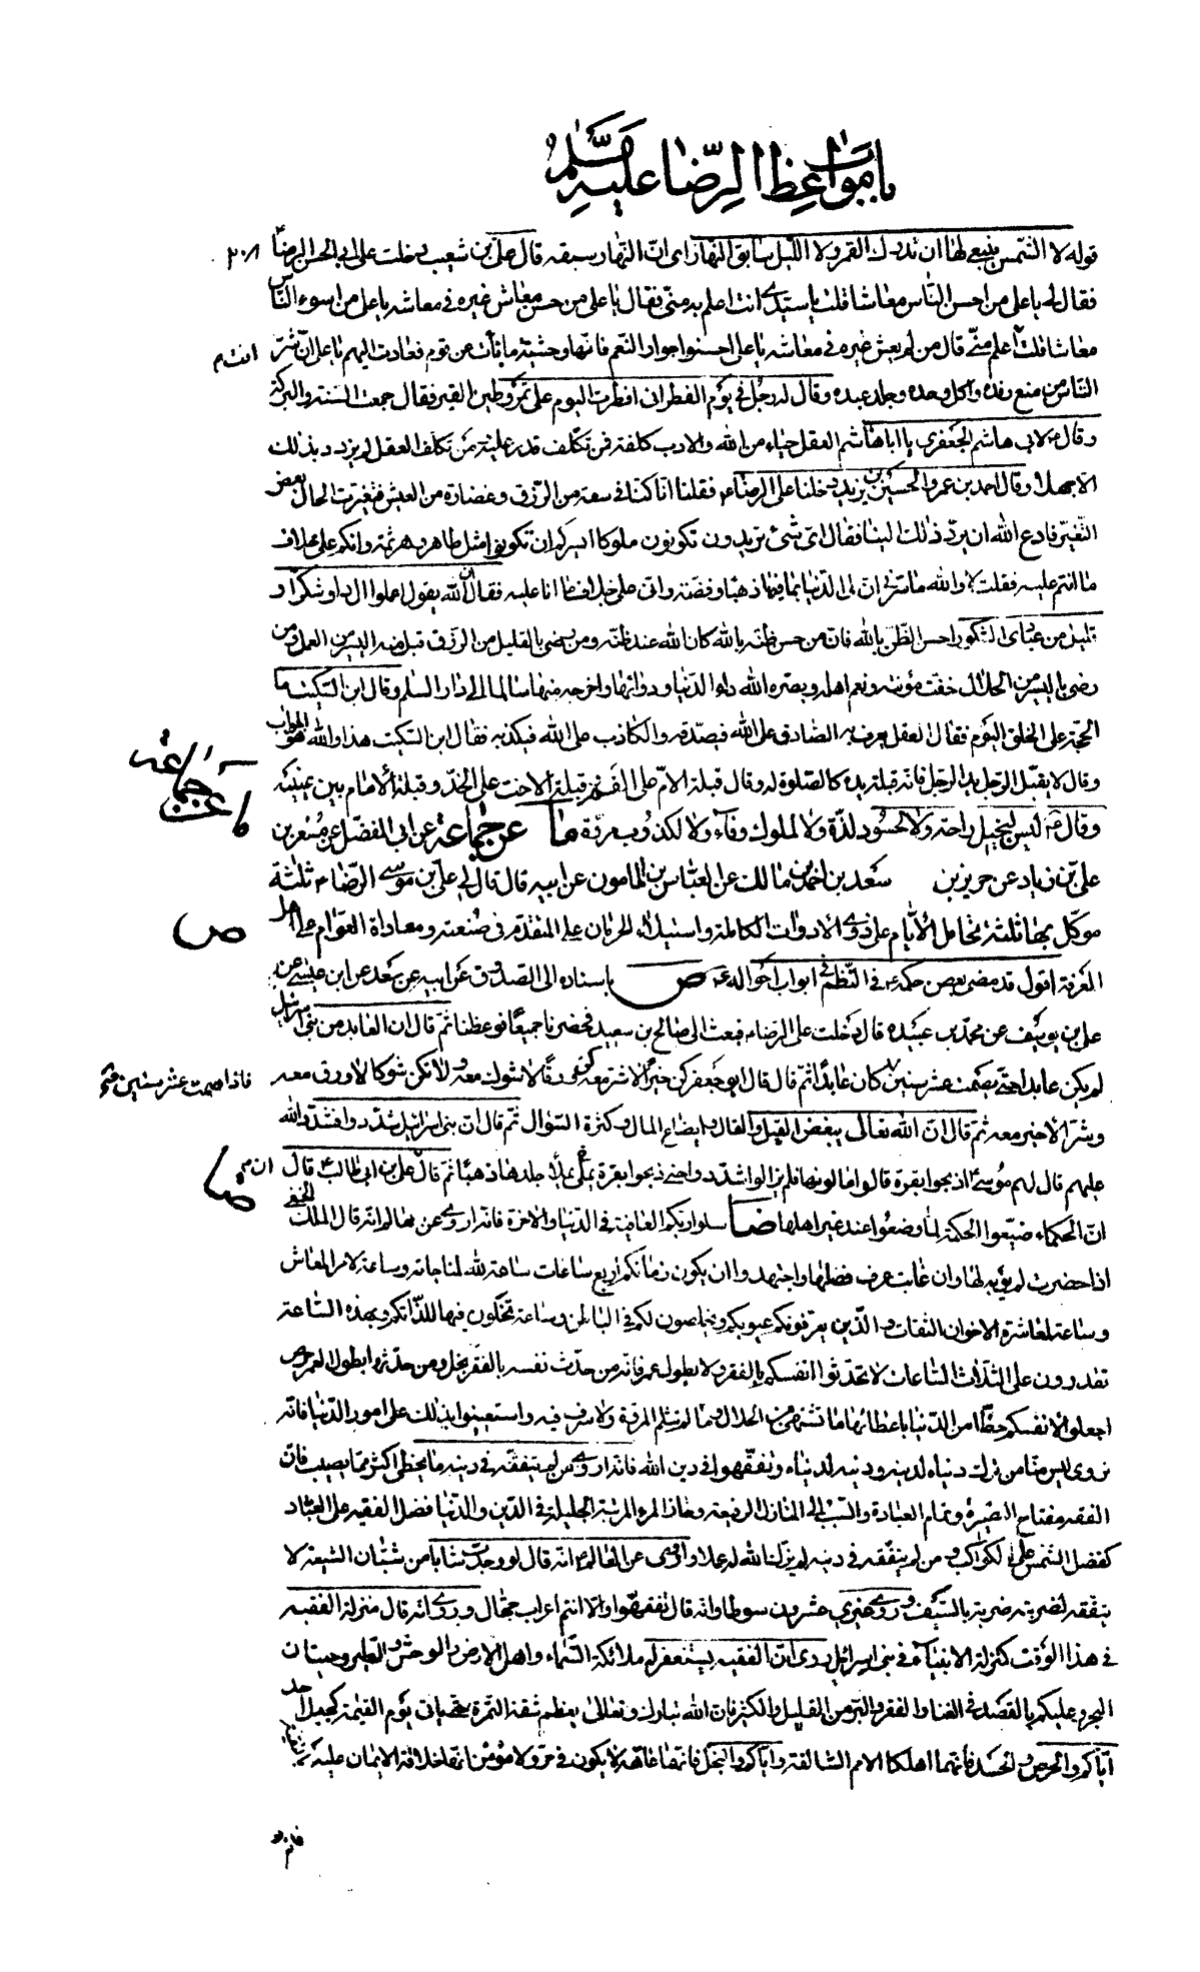 باب مواعظ الرضا عليه السلم
٢٠٨
قوله لا الشمس ينبغي لها ان تدرك القمر ولا الليل سابق النهار اى ان النهار سبقه قال علي بن شعيب دخلت على ابي الحسن الرضا ع
فقال لي يا علي من احسن الناس معاشا قلت يا سيدي انت اعلم به مني فقال يا علي من حسن معاش غيره في معاشه يا علي من اسوء الناس
معاشا قلت انت اعلم مني قال من لم يعش غيره في معاشه يا علي احسنوا جوار النعم فانها وحشية ما نات عن قوم فعادت اليهم يا علي ان شر
الناس من منع رفده واكل وحده وجلد عبده وقال له رجل في يوم الفطر اني افطرت اليوم على تمر وطين القبر فقال جمعت السنة والبركة
وقال ع لابي هاشم الجعفري يا ابا هاشم العقل حباء من الله والادب كلفة فمن تكلف الادب قدر عليه ومن تكلف العقل لم يزدد بذلك
الا جهلا وقال احمد بن عمر والحسين بن يزيد دخلنا على الرضا ع فقلنا انا كنا في سعة من الرزق وغضارة من العيش فتغيرت الحال بعض
التغير فادع الله ان يرد ذلك الينا فقال اى شئ تريدون تكونون ملوكا ايسركم ان تكونوا مثل طاهر وهرثمة وانكم على خلاف
ما انتم عليه فقلت لا والله ما سرني ان لي الدنيا بما فيها ذهبا وفضة واني على خلاف ما انا عليه فقال ان الله يقول اعملوا ال داود شكرا و
قليل من عبادى الشكور احسن الظن بالله فان من حسن ظنه بالله كان الله عند ظنه ومن رضي بالقليل من الرزق قبل منه اليسير من العمل ومن
رضي باليسير من الحلال خفت مؤنته ونعم اهله وبصره الله داء الدنيا ودواءها واخرجه منها سالما الى دار السلم وقال ابن السكيت ما
الحجة على الخلق اليوم فقال العقل يعرف به الصادق على الله فيصدقه والكاذب على الله فيكذبه فقال ابن السكيت هذا والله هو الجواب
وقال لا يقبل الرجل يد الرجل فان قبلة يده كالصلوة له وقال قبلة الام على الفم وقبلة الاخت على الخد وقبلة الامام بين عينيه
وقال ع ليس لبخيل راحة ولا لحسود لذة ولا لملوك وفاء ولا لكذوب مروة ما عن جماعة عن ابي الفضل عن مسعر بن
ما عن جماعة
علي بن زياد عن حريز بن سعد بن احمد بن مالك عن العباس بن المامون عن ابيه قال قال لي علي بن موسى الرضا ع ثلثة
موكل بها ثلثة تحامل الايام على ذوى الادوات الكاملة واستيلاء الحرمان على المتقدم في صنعته ومعاداة العوام على اهل
ص
المعرفة اقول قد مضى بعض حكمه ع في النظم في ابواب احواله ع ص باسناده الى الصدوق عن ابيه عن سعد عن ابن عيسى عن
علي بن يوسف عن محمد بن عبيده قال دخلت على الرضا ع فبعث الى صالح بن سعيد فحضرنا جميعا فوعظنا ثم قال ان العابد من بني اسرائيل
لم يكن عابدا حتى يصمت عشر سنين كان عابدا ثم قال قال ابو جعفر كن خيرا لا شر معه كن ورقا لا شوك معه ولا تكن شوكا لا ورق معه
فاذا صمت عشر سنين
وشرا لا خير معه ثم قال ان الله تعالى يبغض القيل والقال وايضاع المال وكثرة السؤال ثم قال ان بني اسرائيل شددوا فشدد الله
عليهم قال لهم موسى ع اذبحوا بقرة قالوا ما لونها فلم يزالوا شددوا حتى ذبحوا بقرة يملأ جلدها ذهبا ثم قال ان علي بن ابي طالب ع قال
ضا
ان الحكماء ضيعوا الحكمة لما وضعوا عند غير اهلها ضا سلوا ربكم العافية في الدنيا والاخرة فانه اروى عن العالم انه قال الملك الخفي
اذا حضرت لم يؤبه لها وان غابت عرف فضلها واجتهدوا ان يكون زمانكم اربع ساعات ساعة لله لمناجاته وساعة لامر المعاش
وساعة لمعاشرة الاخوان الثقات والذين يعرفونكم عيوبكم ويخلصون لكم في الباطن وساعة تخلون فيها للذاتكم وبهذه الساعة
تقدرون على الثلاث الساعات لا تحدثوا انفسكم بالفقر ولا بطول عمر فانه من حدث نفسه بالفقر بخل ومن حدثها بطول العمر حرص
اجعلوا لانفسكم حظا من الدنيا باعطائها ما تشتهي من الحلال وما لم يثلم المروة ولا سرف فيه واستعينوا بذلك على امور الدنيا فانه
نروى ليس منا من ترك دنياه لدينه ودينه لدنياه وتفقهوا في دين الله فانه اروى من لم يتفقه في دينه ما يخطى اكثر مما يصيب فان
الفقه مفتاح البصيرة وتمام العبادة والسبب الى المنازل الرفيعة وحاز المرء المرتبة الجليلة في الدين والدنيا فضل الفقيه على العباد
كفضل الشمس على الكواكب ومن لم يتفقه في دينه لم يزك الله له عملا واروى عن العالم ع انه قال لو وجدت شابا من شبان الشيعة لا
يتفقه لضربته ضربة بالسيف وروى غيري عشرون سوطا وانه قال تفقهوا والا انتم اعراب جهال وروى انه قال منزلة الفقيه
في هذا الوقت كمنزلة الانبياء في بني اسرائيل وروى ان الفقيه يستغفر له ملائكة السماء واهل الارض والوحش والطير وحيتان
البحر وعليكم بالقصد في الغنا والفقر والبر من القليل والكثير فان الله تبارك وتعالى يعظم شقة التمرة حتى ياتي يوم القيمة كجبل احد
اياكم والحرص والحسد فانهما اهلكا الامم السالفة واياكم والبخل فانها عاهة لا يكون في حر ولا مؤمن انها خلاف الايمان عليكم